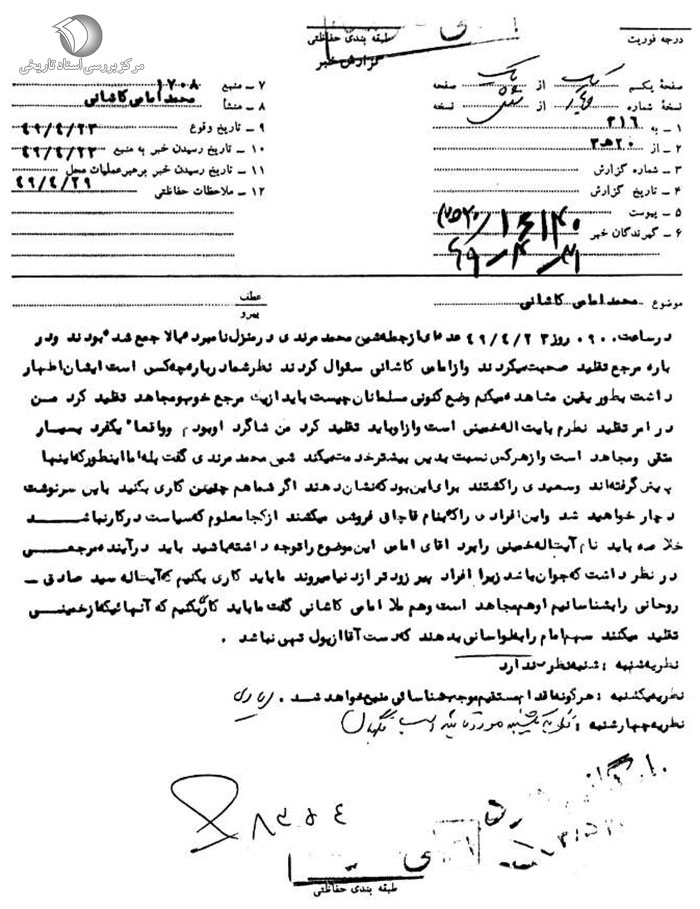 مرکز بررسی اسناد تاریخی
درجه فوریت
طبقه بندی حفاظتی
گزارش خبر
صفحه یکم یک از یک صفحه
نسخه شماره از شش نسخه
۱ ـ به ۳۱۶
۲ ـ از ۲۰ هـ ۳
۳ ـ شماره گزارش
۴ ـ تاریخ گزارش
۵ ـ پیوست
۶ ـ گیرندگان خبر
۷ ـ منبع ۱۷۰۸
۸ ـ منشأ محمد امامی کاشانی
۹ ـ تاریخ وقوع ۴۹/۴/۲۳
۱۰ ـ تاریخ رسیدن خبر به منبع ۴۹/۴/۲۳
۱۱ ـ تاریخ رسیدن خبر برهبر عملیات محل ۴۹/۴/۲۹
۱۲ ـ ملاحظات حفاظتی
موضوع محمد امامی کاشانی
عطف
پیرو
در ساعت ۰۹۰۰ روز ۴۹/۴/۲۳ عده ای از جمله شیخ محمد مرندی در منزل نامبرده بالا جمع شده بودند و در
باره مرجع تقلید صحبت میکردند و از امامی کاشانی سئوال کردند نظر شما درباره چه کسی است ایشان اظهار
داشت بطور یقین مشاهده میکنم وضع کنونی مسلمانان چیست باید از یک مرجع خوب و مجاهد تقلید کرد من
در امر تقلید نظرم بایت اله خمینی است و از او باید تقلید کرد من شاگرد او بودم و واقعا" یکفرد بسیار
متقی و مجاهد است و از هر کس نسبت بدین بیشتر خدمت میکند شیخ محمد مرندی گفت بله اما اینطور که اینها
پیش گرفته اند و سعیدی را کشتند برای این بود که نشان دهند اگر شما هم چنین کاری بکنید باین سرنوشت
دچار خواهید شد و این افرادی را که بنام قاچاق فروش میکشند از کجا معلوم که سیاست در کار نباشد
خلاصه باید نام آیت اله خمینی را برد آقای امامی این موضوع را توجه داشته باشید باید در آینده مرجعی
در نظر داشت که جوان باشد زیرا افراد پیر زودتر از دنیا میروند ما باید کاری بکنیم که آیت اله سید صادق ـ
روحانی را بشناسانیم او هم مجاهد است و هم ملا امامی کاشانی گفت ما باید کاری بکنیم که آنهائیکه از خمینی
تقلید میکنند سهم امام را به لواسانی بدهند که دست آقا از پول تهی نباشد .
نظریه شنبه : شنبه نظری ندارد
نظریه یکشنبه : هرگونه اقدام مستقیم موجب شناسائی منبع خواهد شد .
نظریه چهارشنبه : نظریه یکشنبه مورد تأیید است
طبقه بندی حفاظتی